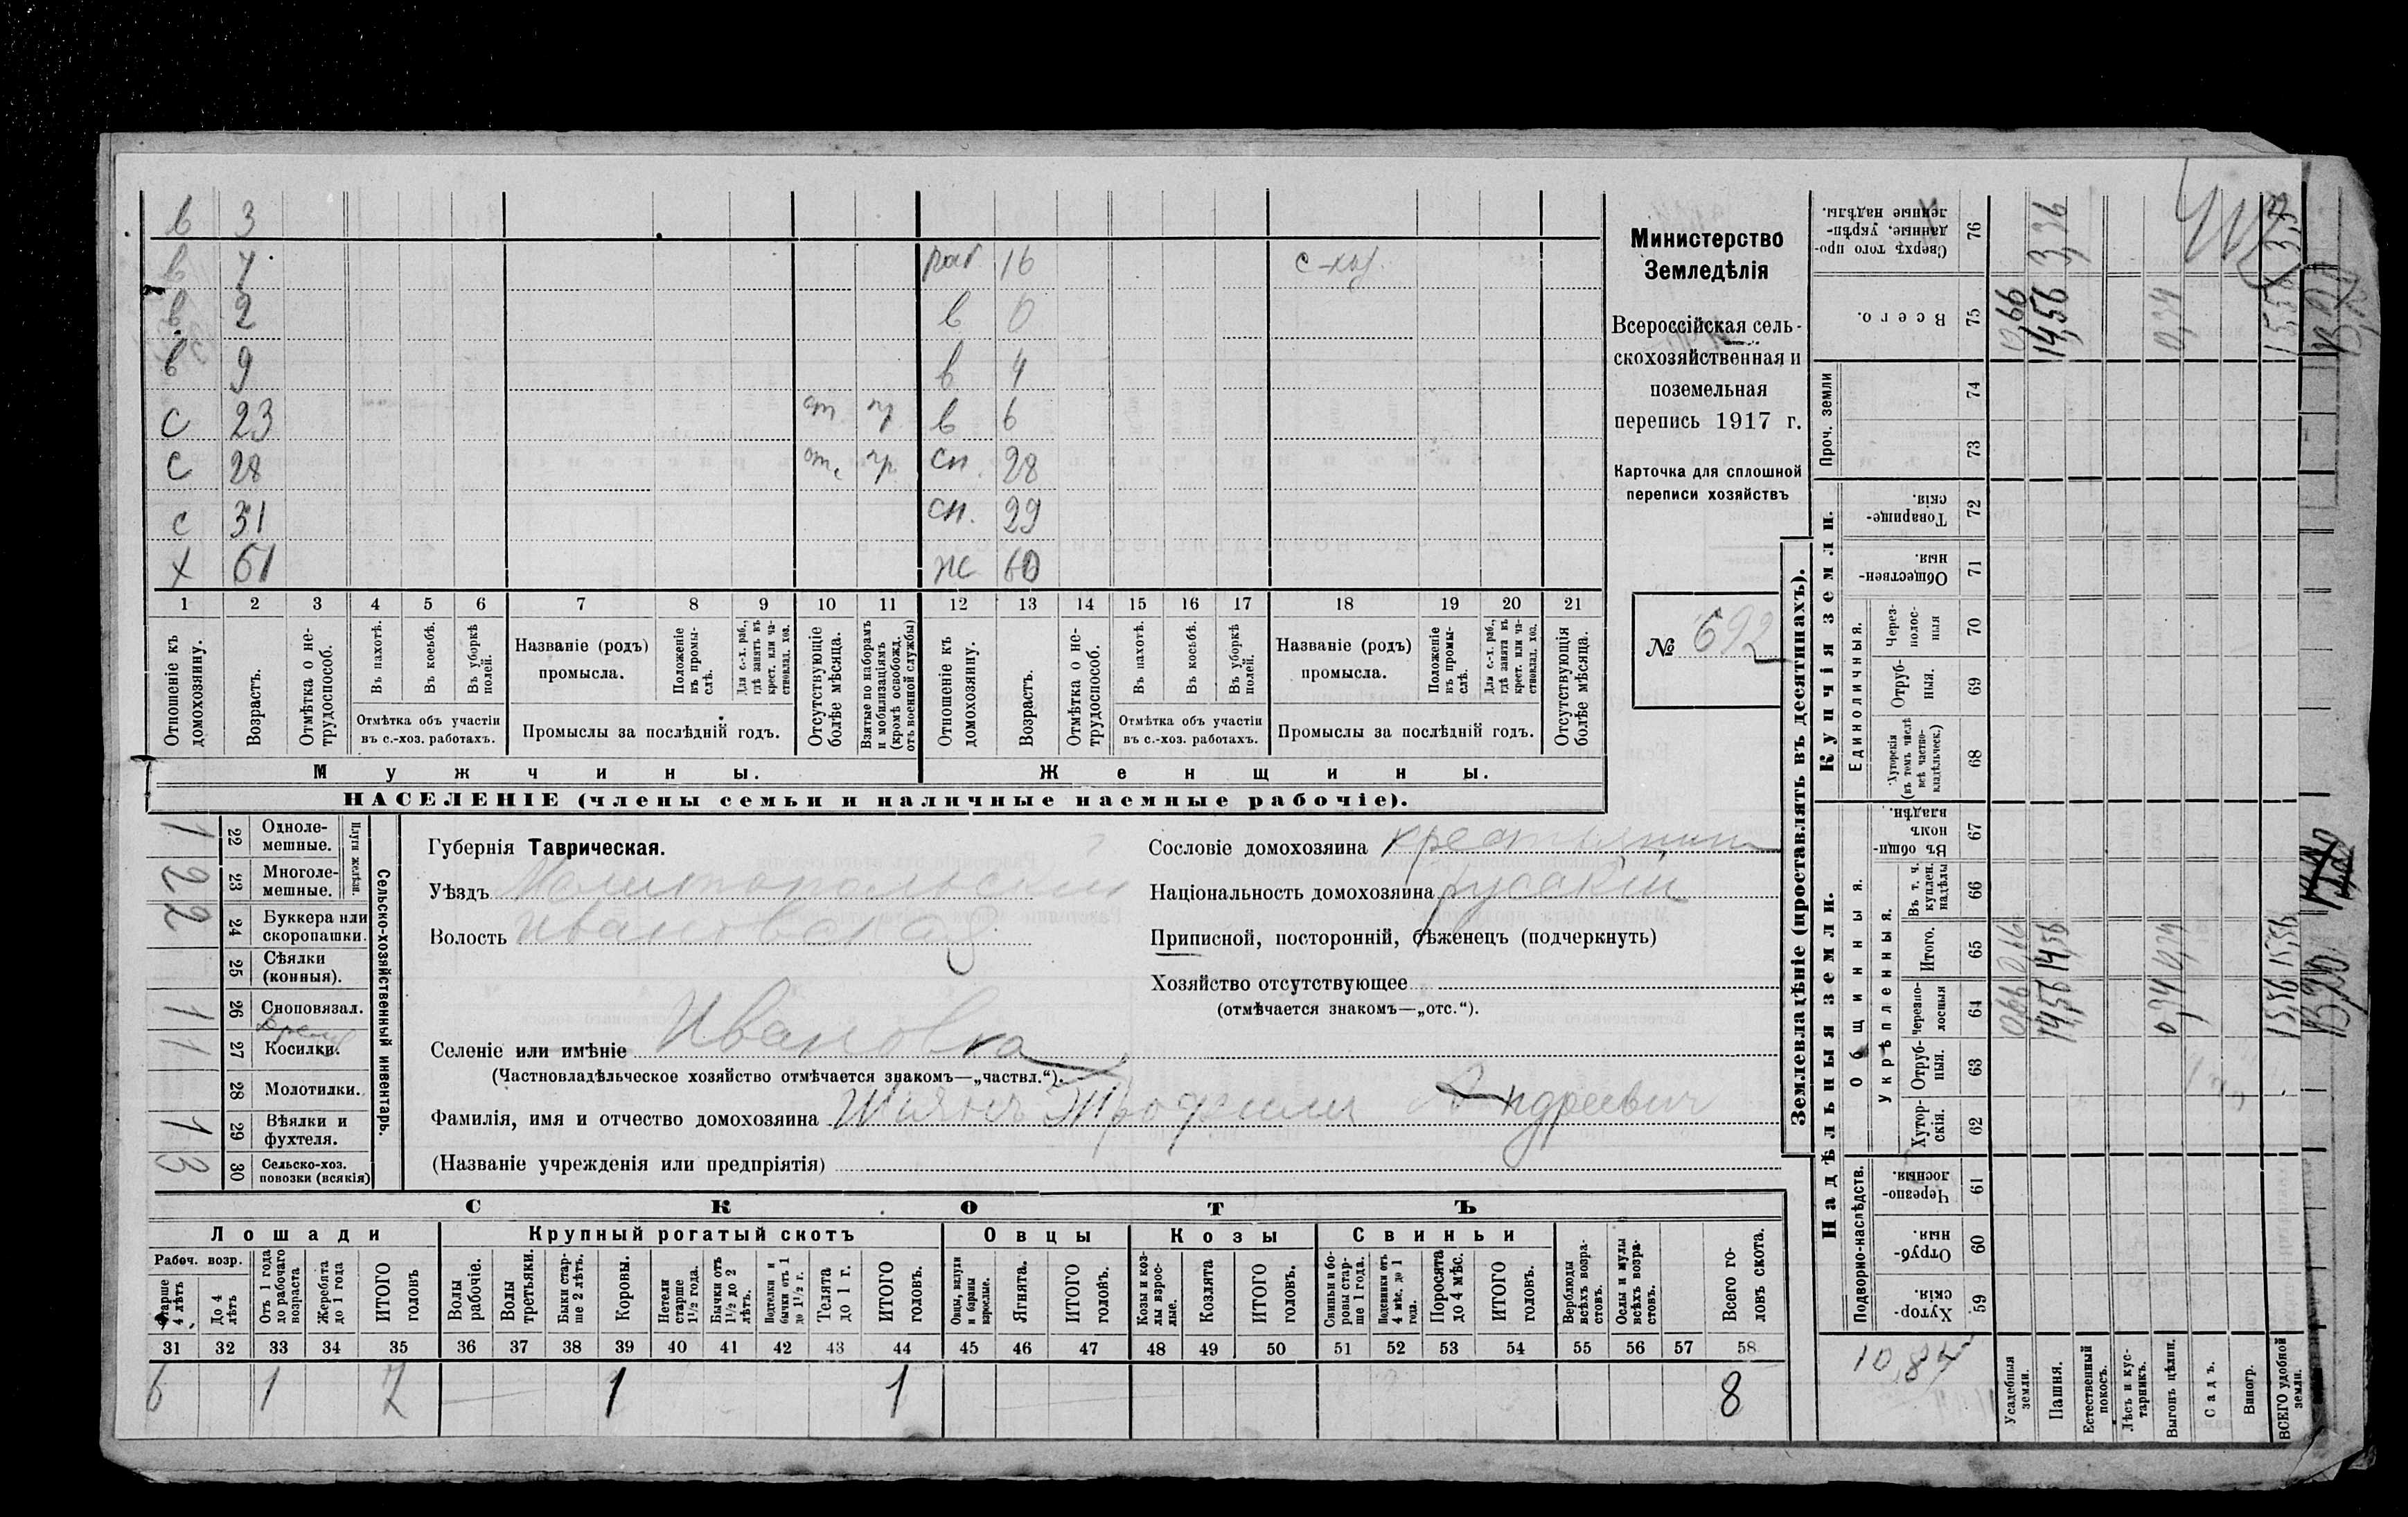 в 3
в 7 раб 16 с-хоз.
в 2 в 0
в 9 в 4
с 23 от. пр. в 6
с 28 от. пр. сн. 28
с 31 сн. 29
х 61 ж 60
1 2 3 4 5 6 7 8 9 10 11 12 13 14 15 16 17 18 19 20 21
Отношеніе къ домохозяину.
Возрастъ.
Отмѣтка о не-трудоспособ.
Въ пахотѣ.
Въ косьбѣ.
Въ уборкѣ полей.
Отмѣтка объ участіи
въ с.-хоз. работахъ.
Названіе (родъ)
промысла.
Положеніе въ промы-слѣ.
Для с.-х. раб., гдѣ занятъ въ крест. или ча-стновлад. хоз.
Промыслы за послѣдній годъ.
Отсутствующіе болѣе мѣсяца.
Взятые по наборамъ и мобилизаціямъ (кромѣ освобожд. отъ военной службы)
Отношеніе къ домохозяину.
Возрастъ.
Отмѣтка о не-трудоспособ.
Въ пахотѣ.
Въ косьбѣ.
Въ уборкѣ полей.
Отмѣтка объ участіи
въ с.-хоз. работахъ.
Названіе (родъ)
промысла.
Положеніе въ промы-слѣ.
Для с.-х. раб., гдѣ занята въ крест. или ча-стновлад. хоз.
Промыслы за послѣдній годъ.
Отсутствующія болѣе мѣсяца.
Мужчины.
Женщины.
НАСЕЛЕНІЕ (члены семьи и наличные наемные рабочіе).
Министерство
Земледѣлія
Всероссійская сель-
скохозяйственная и
поземельная
перепись 1917 г.
Карточка для сплошной
переписи хозяйствъ
№ 692
Сельско-хозяйственный инвентарь.
Плуги желѣзн.
1 22 Одноле-мешные.
2 23 Многоле-мешные.
2 24 Буккера или скоропашки.
25 Сѣялки (конныя).
1 26 Сноповязал.
1 27 Косилки.
28 Молотилки.
1 29 Вѣялки и фухтеля.
3 30 Сельско-хоз. повозки (всякія)
Губернія Таврическая.
Уѣздъ Мелитопольскій
Волость Ивановская
Селеніе или имѣніе Ивановка
(Частновладѣльческое хозяйство отмѣчается знакомъ—„частвл.“).
Фамилія, имя и отчество домохозяина Шиянъ Трофимъ Андреевич
(Названіе учрежденія или предпріятія)
Сословіе домохозяина крестьянин
Національность домохозяина русскій
Приписной, посторонній, бѣженецъ (подчеркнуть)
Хозяйство отсутствующее
(отмѣчается знакомъ—„отс.“).
СКОТЪ
Лошади
Крупный рогатый скотъ
Овцы
Козы
Свиньи
Рабоч. возр.
Старше 4 лѣтъ
До 4 лѣтъ
Отъ 1 года до рабочаго возраста
Жеребята до 1 года
ИТОГО головъ
Волы рабочіе.
Волы третьяки.
Быки стар-ше 2 лѣтъ.
Коровы.
Нетели старше 1½ года.
Бычки отъ 1½ до 2 лѣтъ.
Подтелки и бычки отъ 1 до 1½ г.
Телята до 1 г.
ИТОГО головъ.
Овцы, валухи и бараны взрослые.
Ягнята.
ИТОГО головъ.
Козы и коз-лы взрос-лые.
Козлята
ИТОГО головъ.
Свиньи и бо-ровы стар-ше 1 года.
Подсвинки отъ 4 мѣс. до 1 года.
Поросята до 4 мѣс.
ИТОГО головъ.
Верблюды всѣхъ возра-стовъ.
Ослы и мулы всѣхъ возра-стовъ.
Всего го-ловъ скота.
31 32 33 34 35 36 37 38 39 40 41 42 43 44 45 46 47 48 49 50 51 52 53 54 55 56 57 58
6 1 7 1 1 8
Землевладѣніе (проставлять въ десятинахъ).
Надѣльныя земли.
Купчія земли.
Проч. земли
Подворно-наслѣдств.
Общинныя.
Укрѣпленныя.
Единоличныя.
Хутор-скія. 59
Отруб-ныя. 60
Черезпо-лосныя. 61
Хутор-скія. 62
Отруб-ныя. 63
Черезпо-лосныя 64
Итого. 65
Въ т. ч. куплен. надѣлы 66
Въ общи-номъ владѣн. 67
Хуторскія (въ томъ числѣ всѣ частно-владѣльческ.) 68
Отруб-ныя. 69
Через-полос-ныя 70
Обществен-ныя 71
Товарище-скія. 72
73
74
Всего. 75
Сверхъ того про-данные, укрѣп-ленные надѣлы. 76
10,84
Усадебныя земли. 0,66 0,66 0,66
Пашня. 14,56 14,56 14,56 3,36
Естественный покосъ.
Лѣсъ и кус-тарникъ.
Выгонъ цѣлин. 0,34 0,34 0,34
Садъ.
Виногр.
ВСЕГО удобной земли. 15,56 15,56 15,56